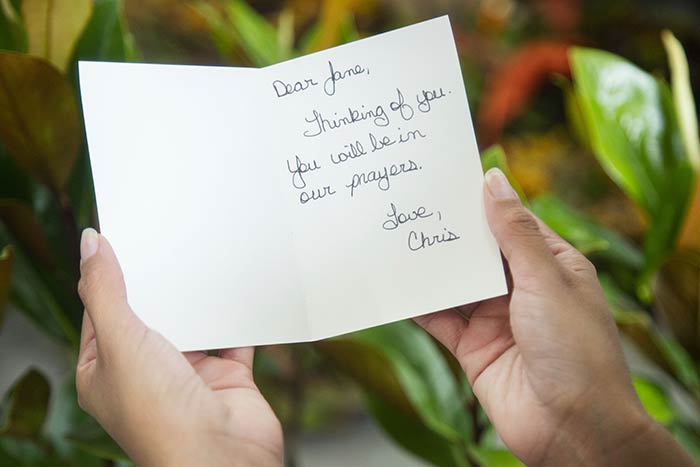 Dear Jane,
Thinking of you.
You will be in
our prayers.
Love,
Chris